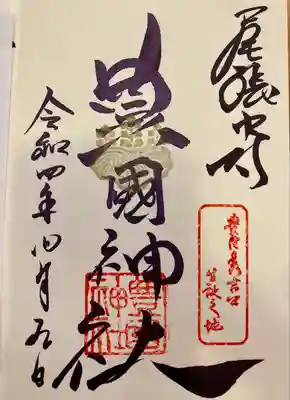 尾張中村
豊臣秀吉公
生誕之地
豊國神社
令和四年四月九日